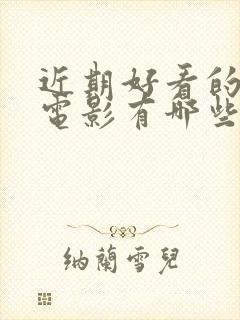 近期好看的
电影有哪些
纳兰雪儿